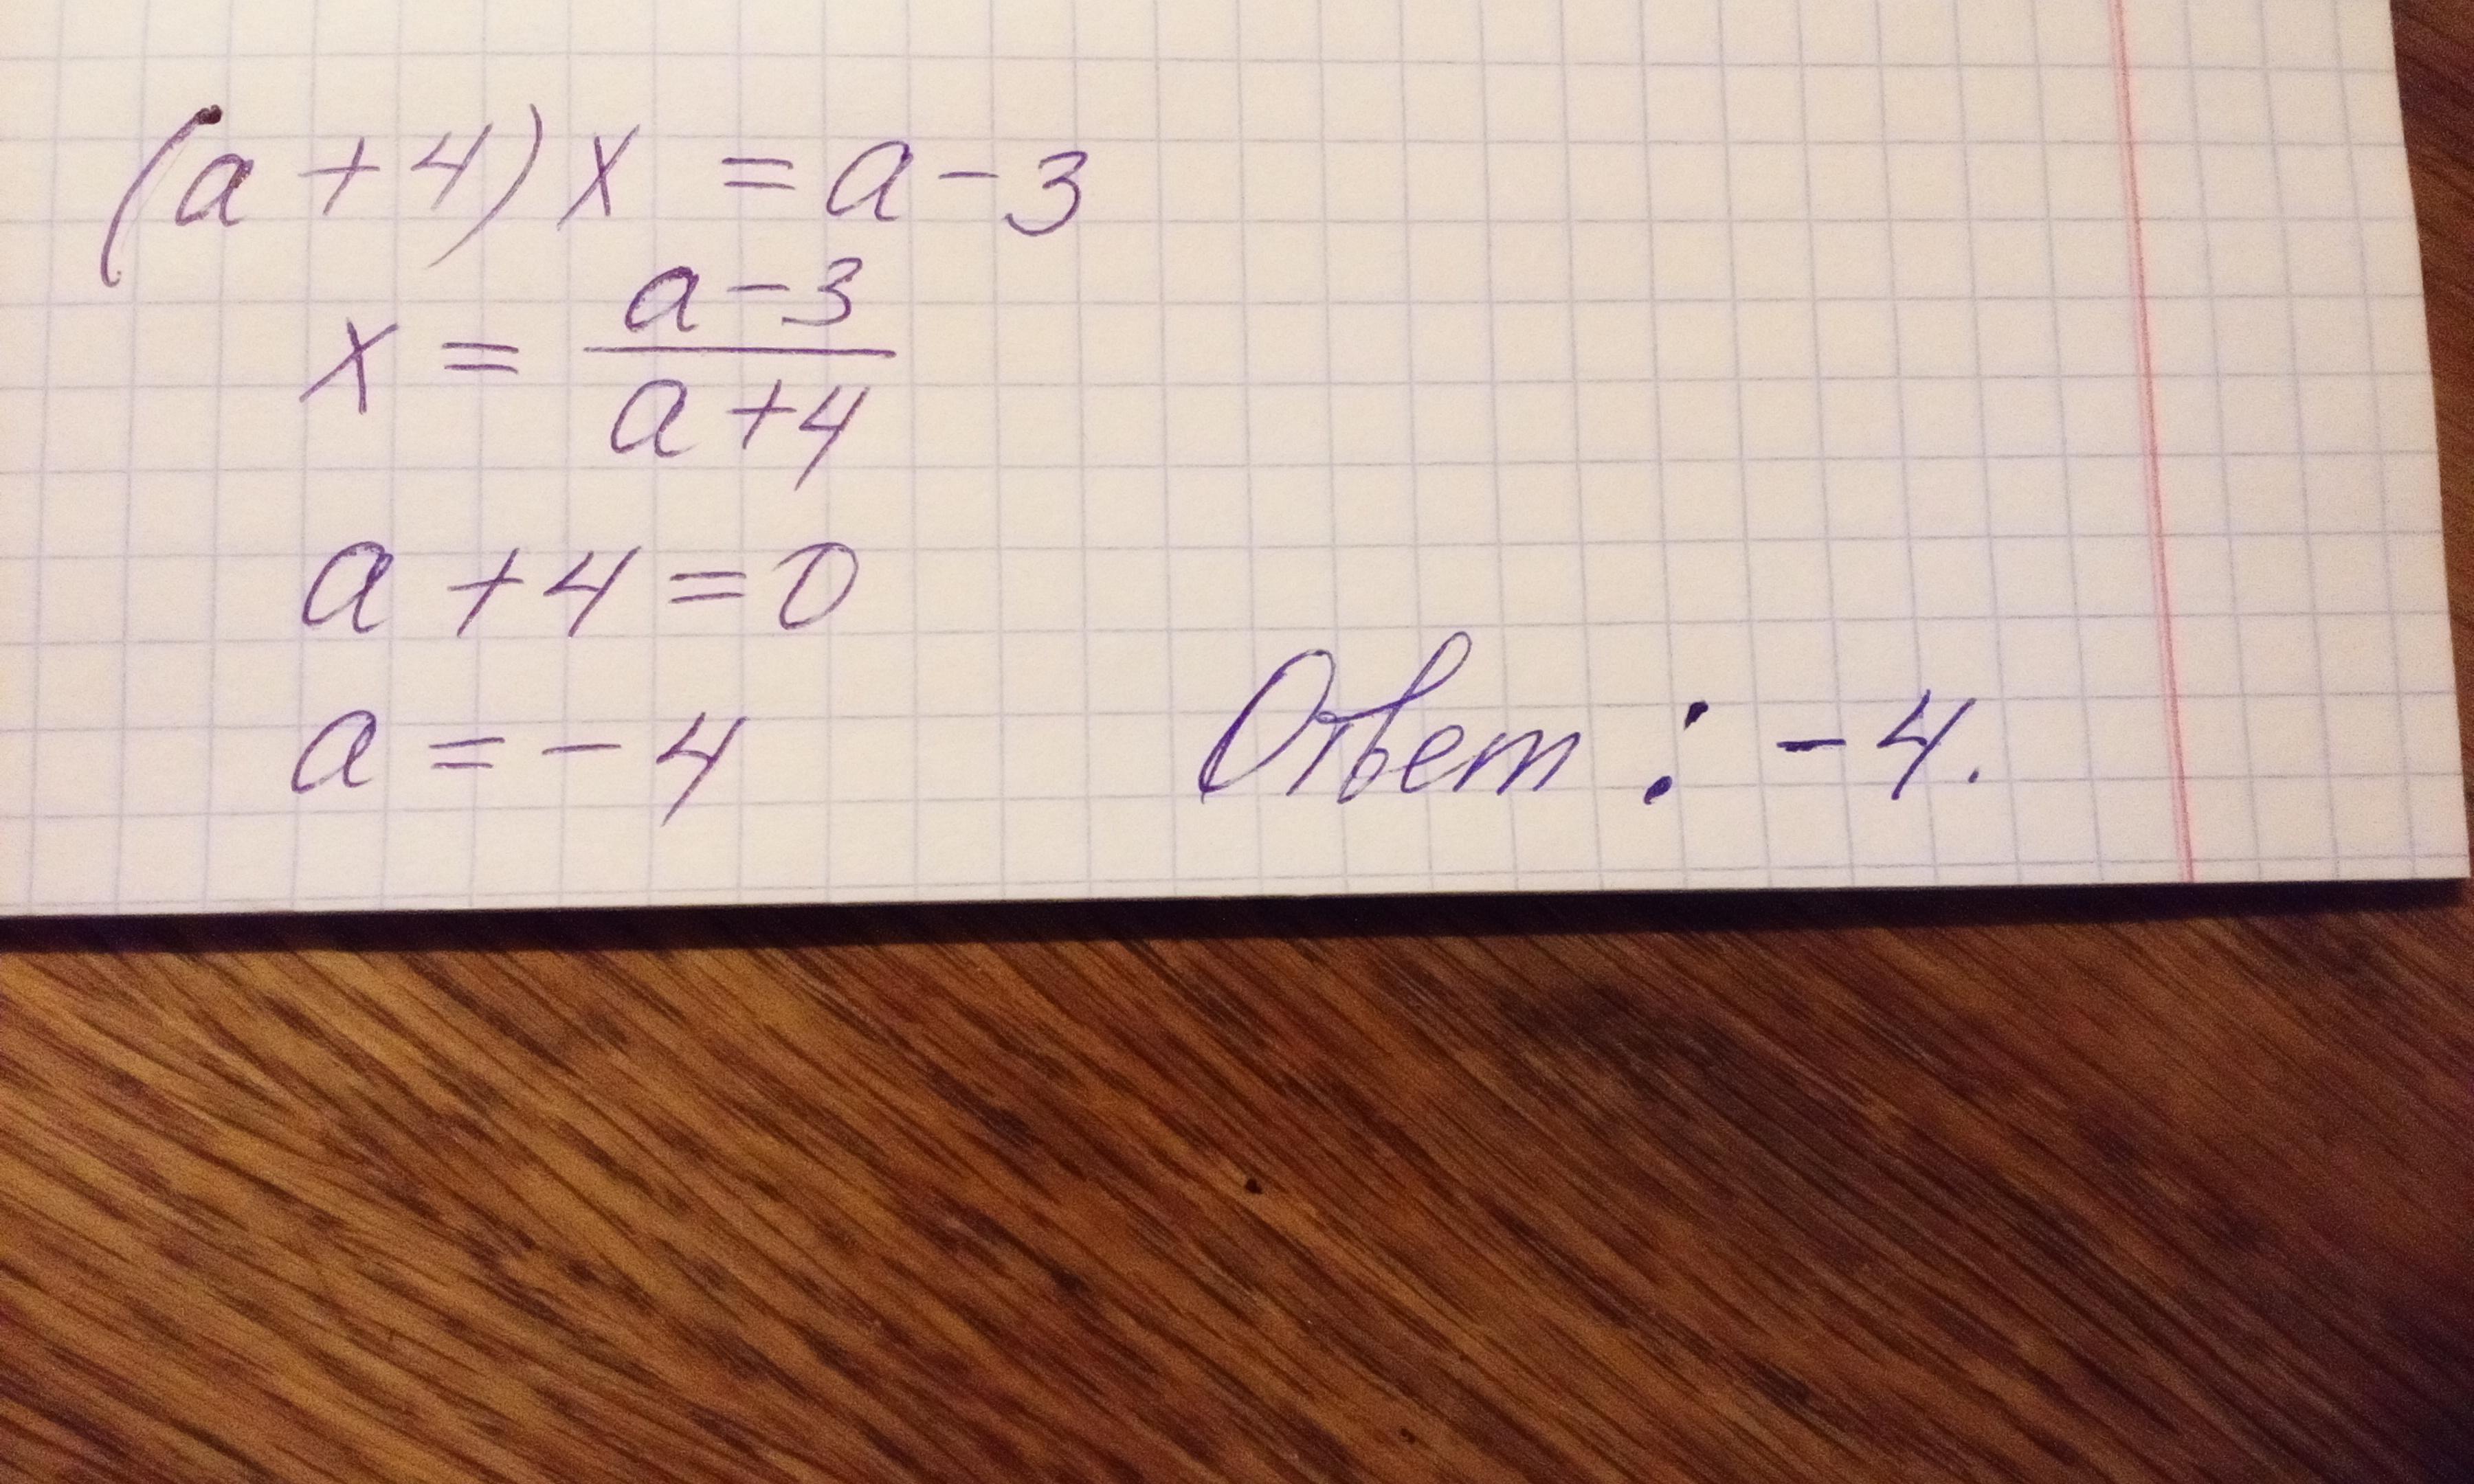 (a + 4) x = a - 3
x = \frac{a-3}{a+4}
a + 4 = 0
a = - 4
Ответ : - 4.